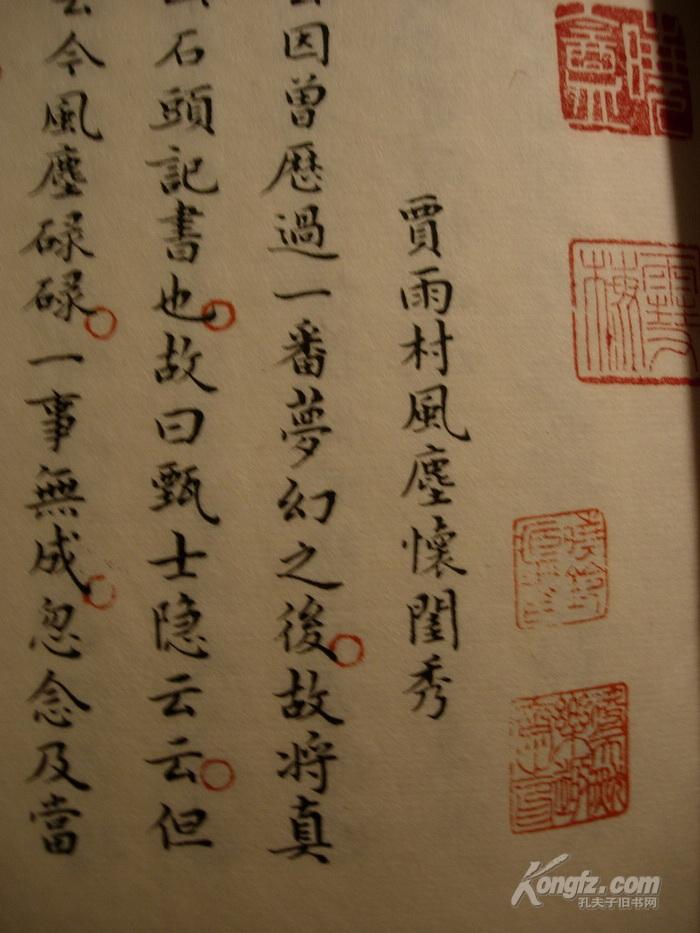 賈雨村風塵懷閨秀
因曾歷過一番夢幻之後故将真
石頭記書也故曰甄士隐云云但
今風塵碌碌一事無成忽念及當
Kongfz.com
孔夫子旧书网